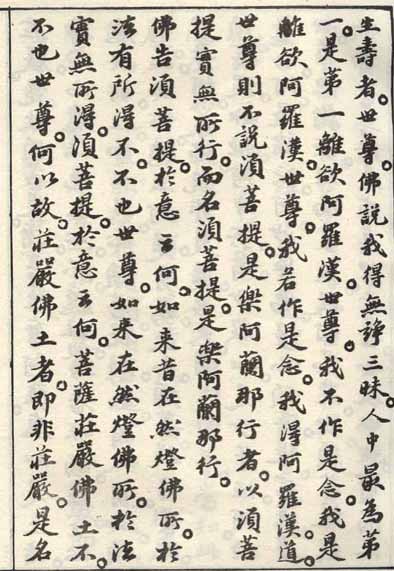 生壽者。世尊。佛說我得無諍三昧。人中最為第
一。是第一離欲阿羅漢。世尊。我不作是念。我是
離欲阿羅漢。世尊。我若作是念。我得阿羅漢道。
世尊則不說須菩提。是樂阿蘭那行者。以須菩
提實無所行。而名須菩提。是樂阿蘭那行。
佛告須菩提。於意云何。如來昔在然燈佛所。於
法有所得不。不也世尊。如來在然燈佛所。於法
實無所得。須菩提。於意云何。菩薩莊嚴佛土不。
不也世尊。何以故。莊嚴佛土者。即非莊嚴。是名